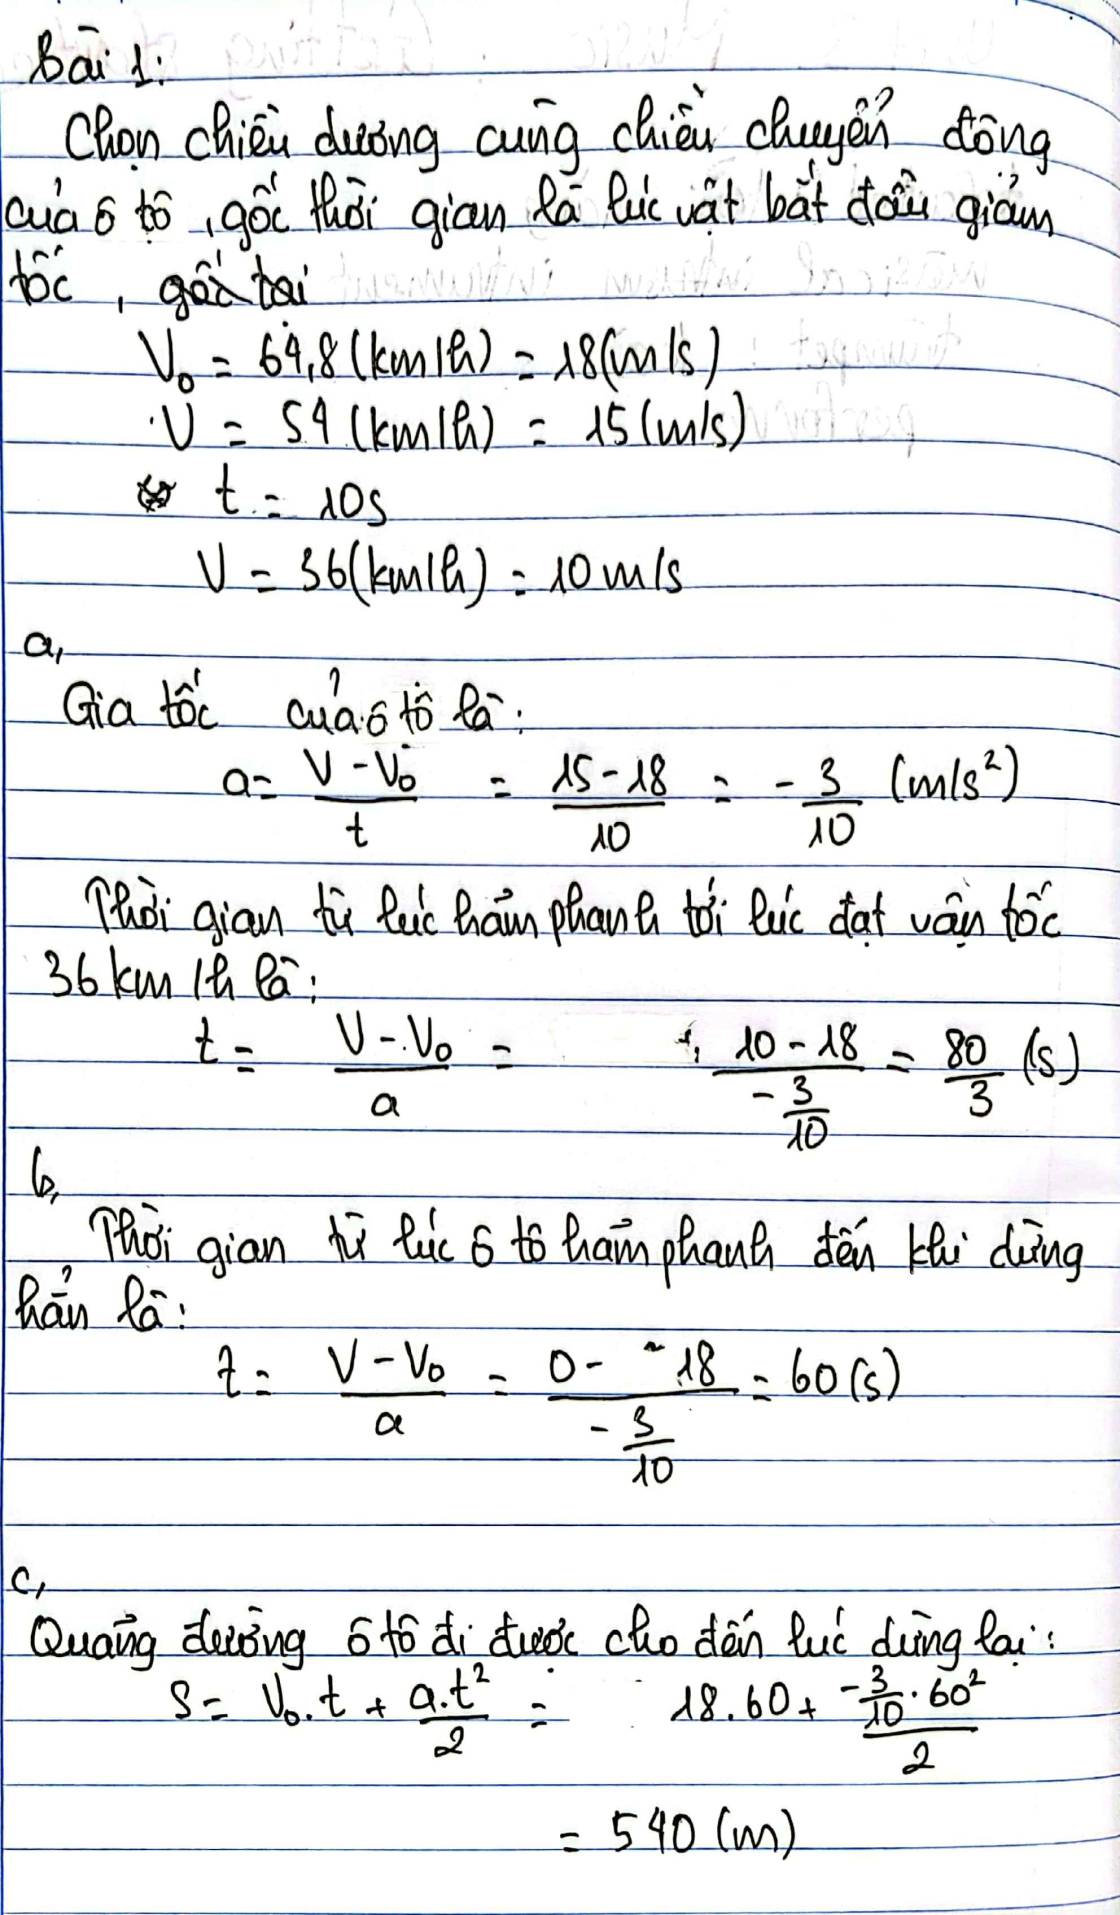 Bài 1:
Chọn chiều dương cùng chiều chuyển động
của ô tô, gốc thời gian là lúc vật bắt đầu giảm
tốc, gốc tại
V₀ = 64,8 (km/h) = 18(m/s)
V = 54 (km/h) = 15 (m/s)
t = 10s
V = 36(km/h) = 10 m/s
a,
Gia tốc của ô tô là:
a = (V - V₀)/t = (15 - 18)/10 = -3/10 (m/s²)
Thời gian từ lúc hãm phanh tới lúc đạt vận tốc
36 km/h là:
t = (V - V₀)/a = (10 - 18)/(-3/10) = 80/3 (s)
b,
Thời gian từ lúc ô tô hãm phanh đến khi dừng
hẳn là:
t = (V - V₀)/a = (0 - 18)/(-3/10) = 60 (s)
c,
Quãng đường ô tô đi được cho đến lúc dừng lại:
S = V₀.t + a.t²/2 = 18.60 + (-3/10 . 60²)/2
= 540 (m)